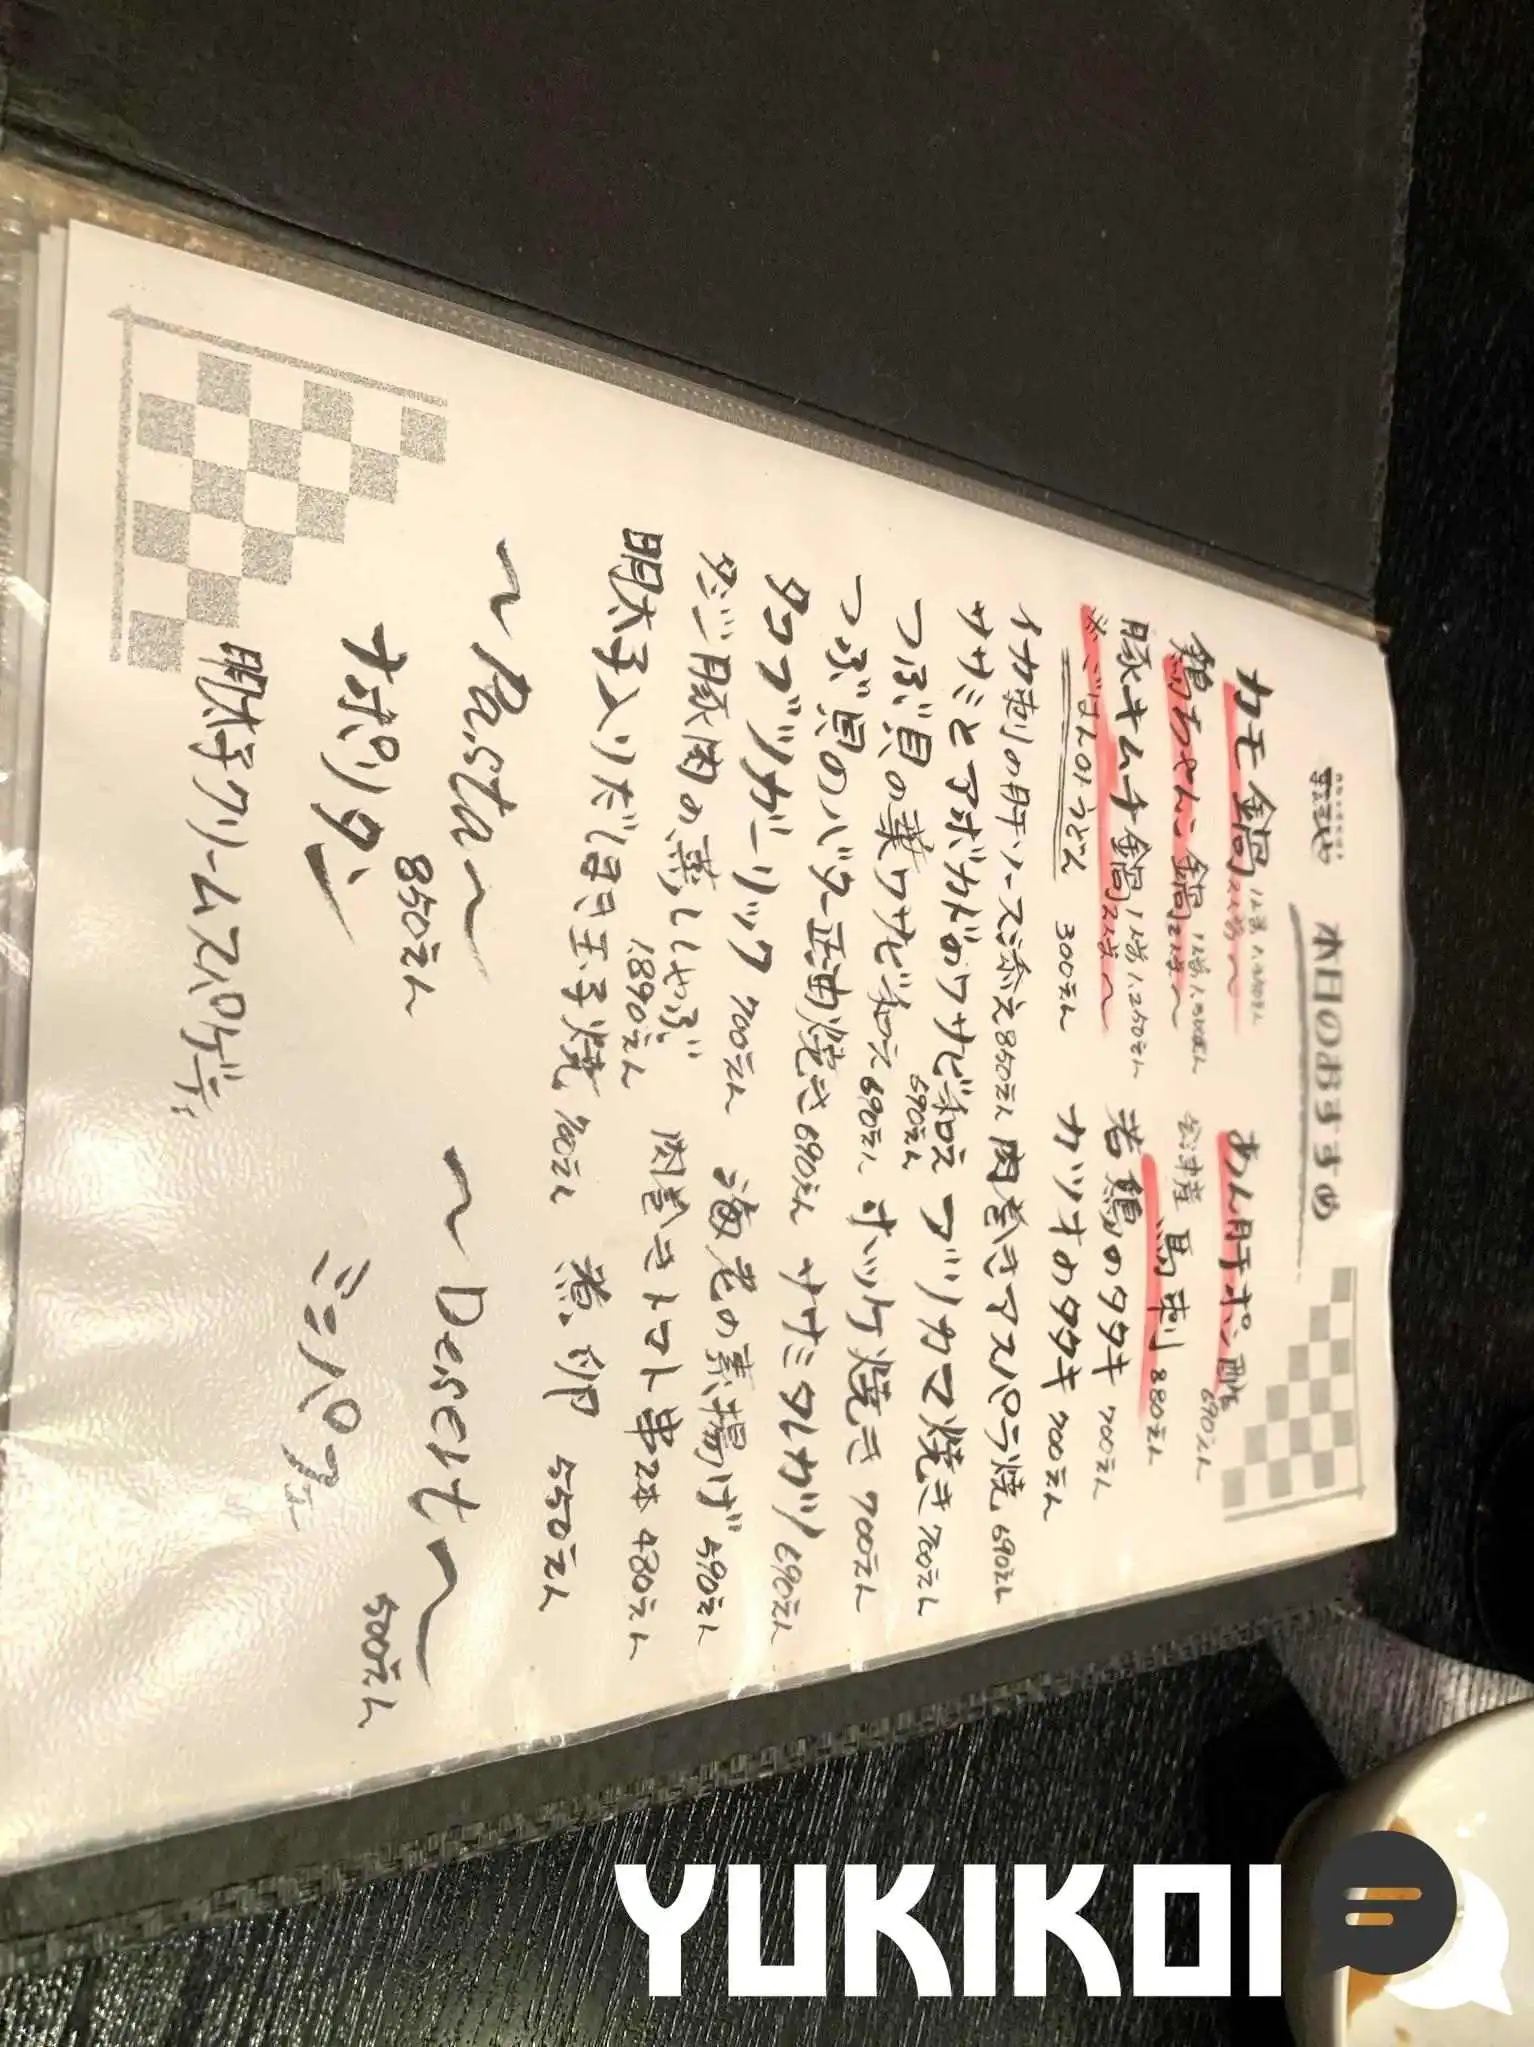 本日のおすすめ
カモ鍋 1人前
2人前〜
鶏ちゃんこ鍋 1人前
2人前〜
豚キムチ鍋 1人前 1.250えん
2人前〜
※ごはんorうどん 300えん
イカ刺の肝ソース添え 850えん
ササミとアボカドのワサビ和え 690えん
つぶ貝の葉ワサビ和え 690えん
つぶ貝のバター正油焼き 690えん
タコブツガーリック 700えん
豚肉の蒸ししゃぶ
1.890えん
明太子入りだし巻き玉子焼 700えん
あん肝ポン酢 690えん
会津産 馬刺 880えん
若鶏のタタキ 700えん
カツオのタタキ 700えん
肉巻きアスパラ焼 690えん
ブリカマ焼き 700えん
ホッケ焼き 700えん
ササミタレカツ 690えん
海老の素揚げ 590えん
肉巻きトマト串2本 480えん
煮卵 550えん
〜Pasta〜
ナポリタン
850えん
明太子クリームスパゲティ
〜Desert〜
ミニパフェ
500えん
YUKIKOI